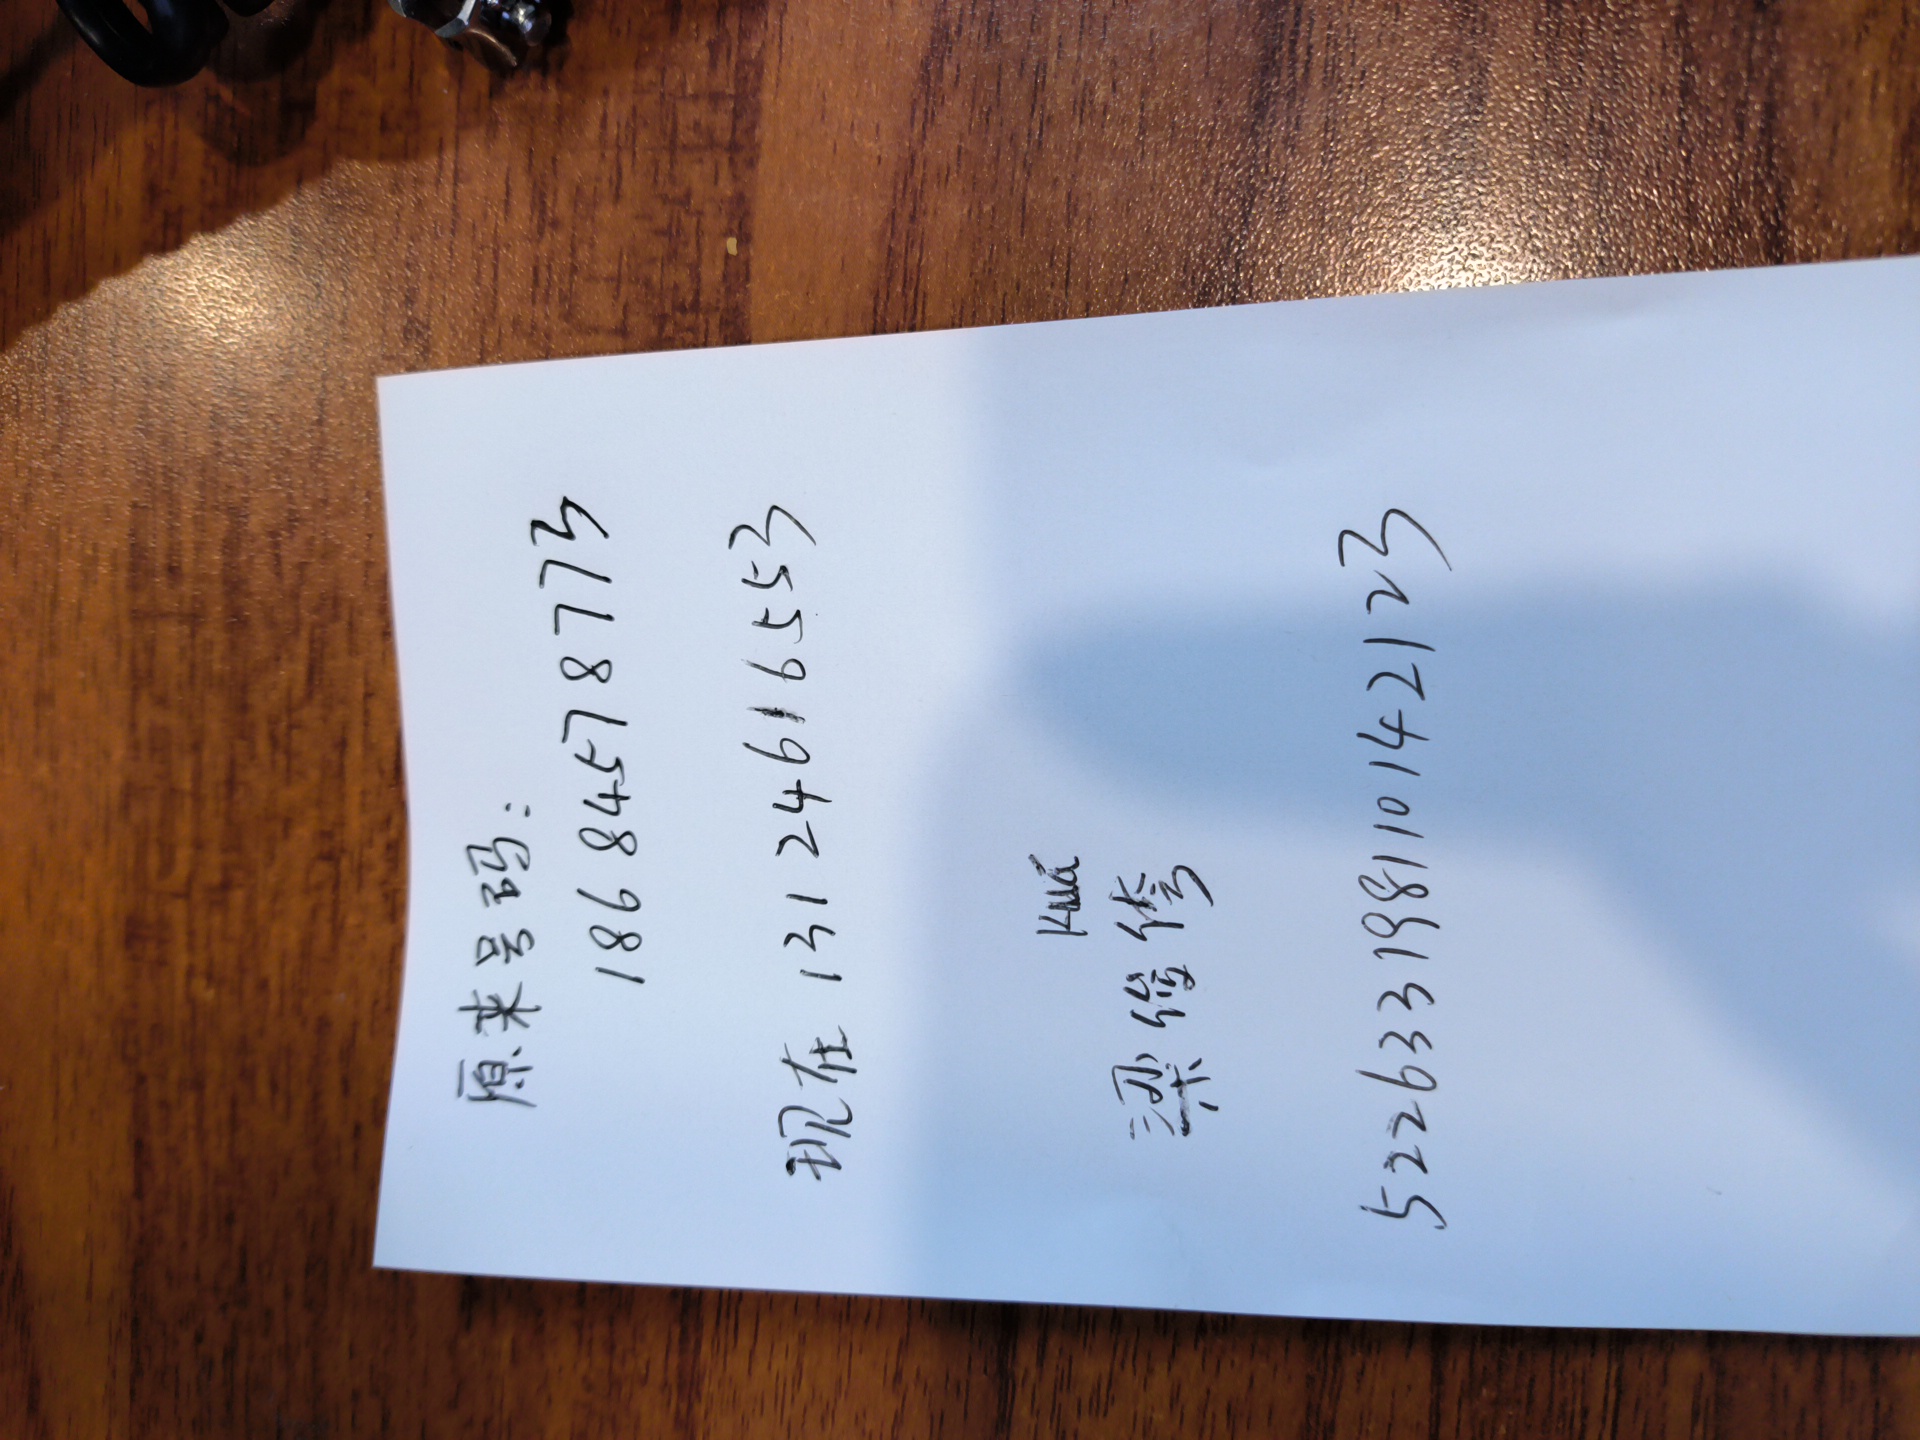 原来号码:
18684578773
现在 13124616553
Kuá
梁俊侉
522633198110142123